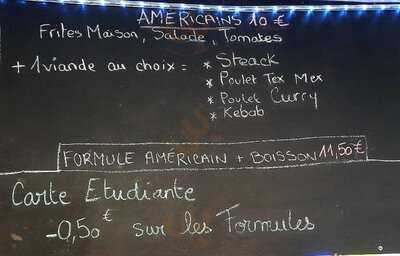 AMÉRICAINS 10 €
Frites Maison, Salade, Tomates
+ 1 viande au choix = * Steack
* Poulet Tex Mex
* Poulet Curry
* Kebab
FORMULE AMÉRICAIN + BOISSON 11,50 €
Carte Etudiante
-0,50 € sur les Formules